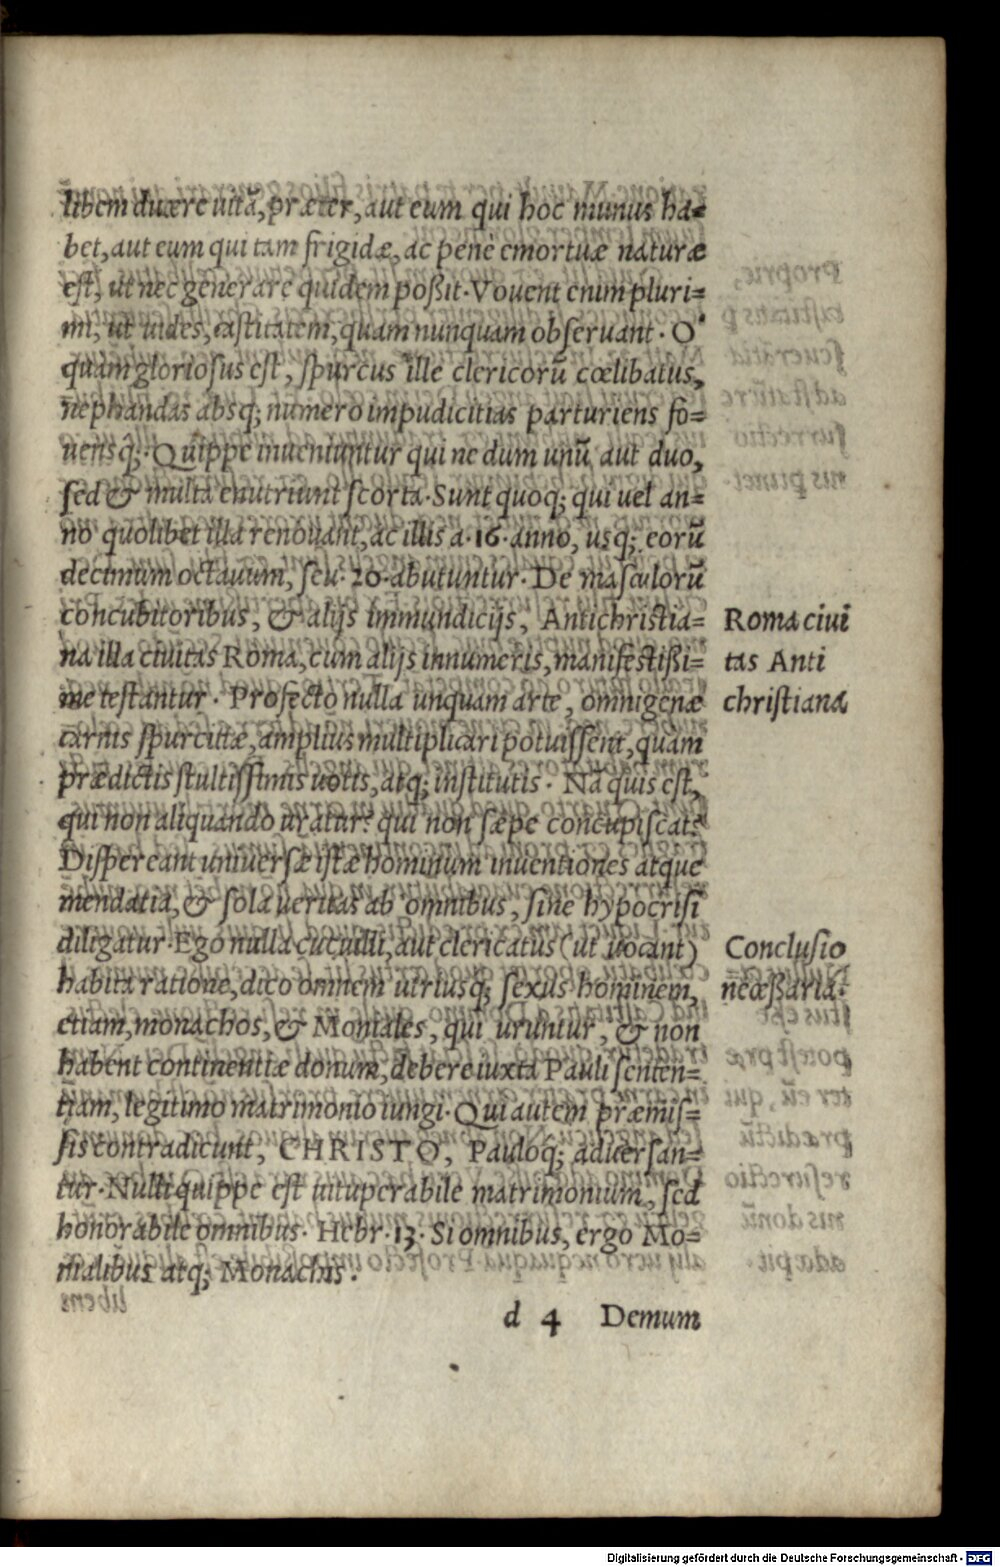 libem ducere uitã, præter, aut eum qui hoc munus ha=
bet, aut eum qui tam frigidæ, ac penè emortuæ naturæ
est, ut nec generare quidem poßit. Vouent enim pluri=
mi, ut uides, castitatem, quam nunquam obseruant. O
quam gloriosus est, spurcus ille clericorũ cœlibatus,
nephandas absq; numero impudicitias parturiens fo=
uensq;. Quippe inueniuntur qui ne dum unũ aut duo,
sed & multa enutriunt scorta. Sunt quoq; qui uel an=
no quolibet illa renouant, ac illis a .16. anno, usq; eorũ
decimum octauum, seu .20. abutuntur. De masculorũ
concubitoribus, & alijs immundicijs, Antichristia=
na illa ciuitas Roma, cum alijs innumeris, manifestißi=
me testantur. Profecto nulla unquam arte, omnigenæ
carnis spurcitiæ, amplius multiplicari potuissent, quam
prædictis stultissimis uotis, atq; institutis. Nã quis est,
qui non aliquando uratur? qui non sæpe concupiscat?
Dispereant uniuersæ istæ hominum inuentiones atque
mendatia, & sola ueritas ab omnibus, sine hypocrisi
diligatur. Ego nulla cuculli, aut clericatus (ut uocant)
habita ratione, dico omnem utriusq; sexus hominem,
etiam, monachos, & Moniales, qui uruntur, & non
habent continentiæ donum, debere iuxta Pauli senten=
tiam, legitimo matrimonio iungi. Qui autem præmis=
sis contradicunt, CHRISTO, Pauloq; aduersan=
tur. Nulli quippe est uituperabile matrimonium, sed
honorabile omnibus. Hebr. 13. Si omnibus, ergo Mo=
nialibus atq; Monachis.
d 4 Demum
Roma ciui
tas Anti
christiana
Conclusio
necæßaria.
Digitalisierung gefördert durch die Deutsche Forschungsgemeinschaft - DFG